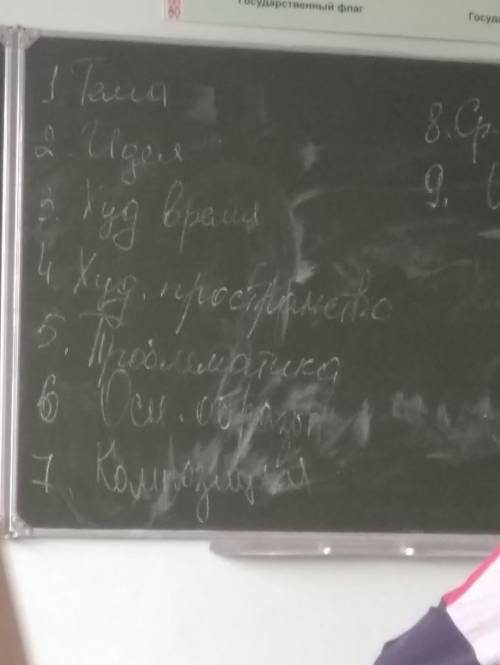 Государственный флаг
1 Тема
2. Идея
3. Худ время
4 Худ. пространство
5. Проблематика
6 Осн. образы
7. Композиция
8. Ср
9.